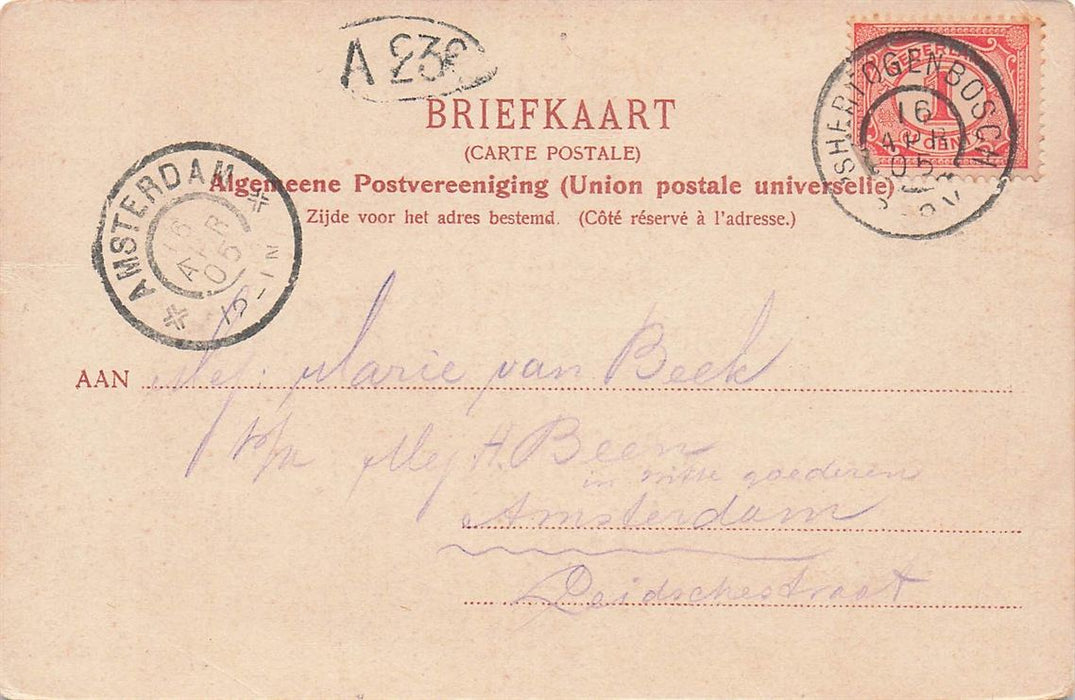 A 236
NEDERLAND
1
'SHERTOGENBOSCH
16
APR
05
BRIEFKAART
(CARTE POSTALE)
Algemeene Postvereeniging (Union postale universelle)
Zijde voor het adres bestemd. (Côté réservé à l'adresse.)
* AMSTERDAM *
16
APR
05
AAN Mej. Marie van Beek
p/a Mej H. Been
in witte goederen
Amsterdam
Leidschestraat